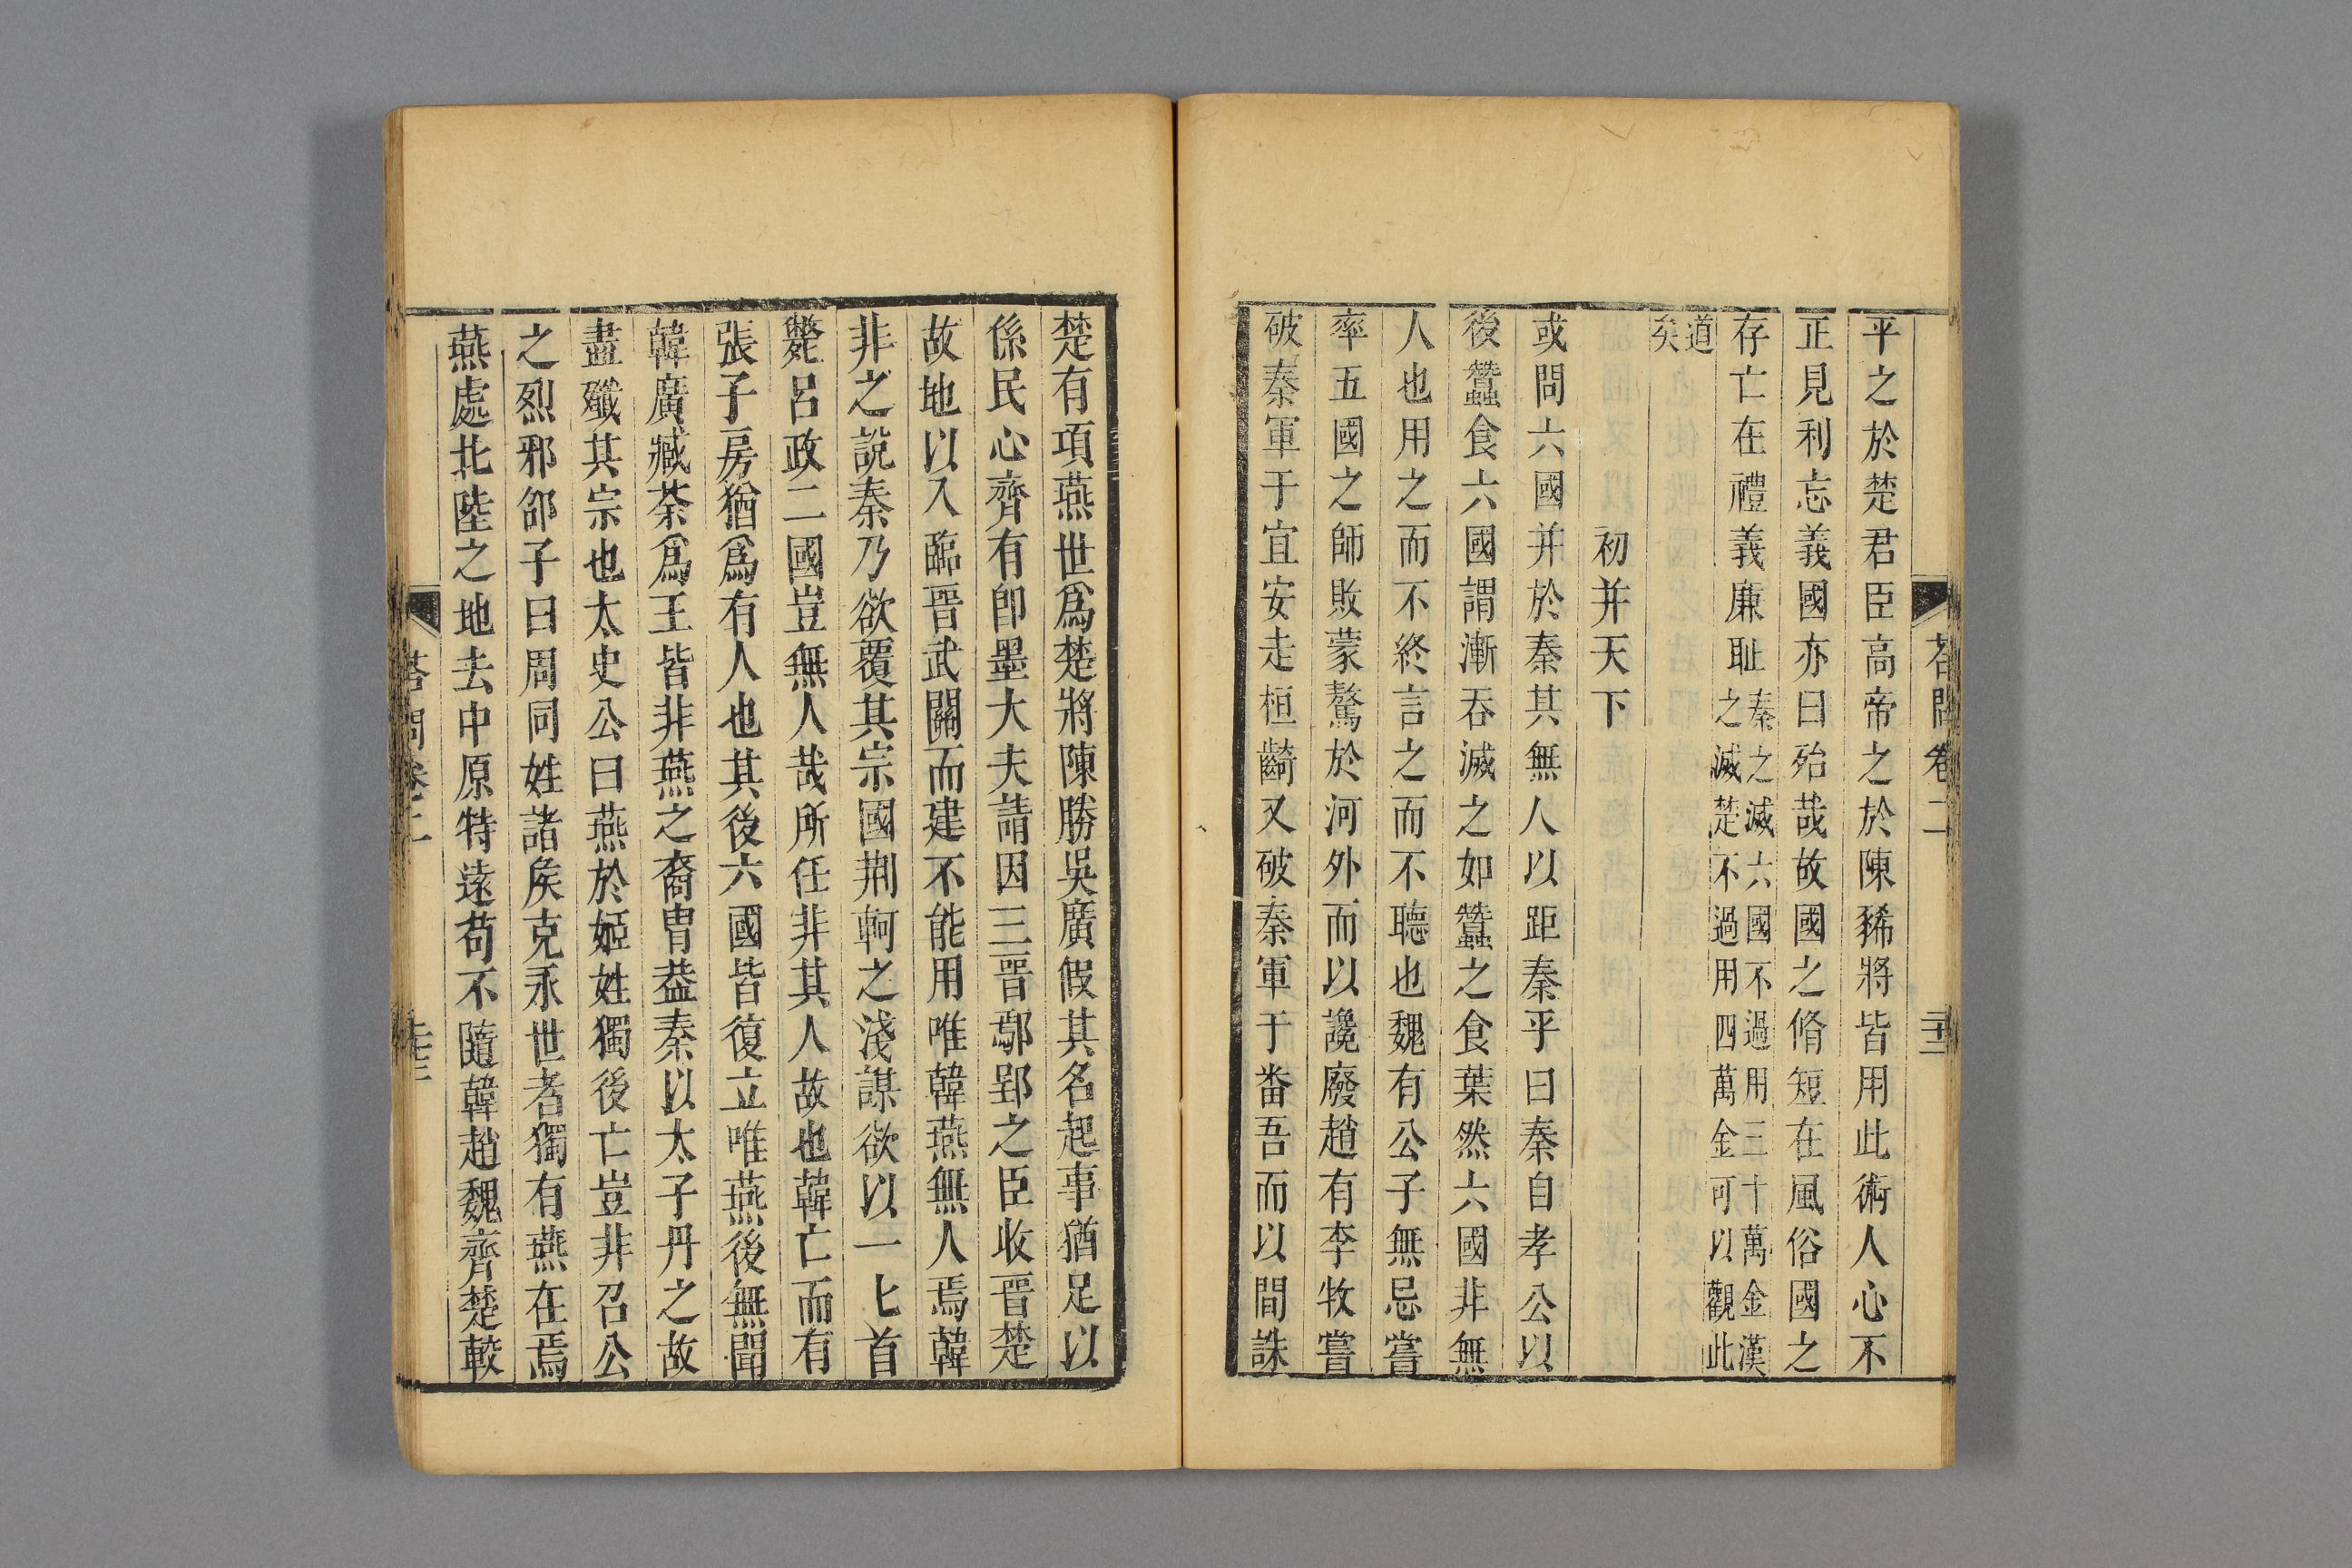 荅問卷二
平之於楚君臣高帝之於陳豨將皆用此術人心不
正見利忘義國亦曰殆哉故國之脩短在風俗國之
存亡在禮義廉耻秦之滅六國不過用三十萬金漢
之滅楚不過用四萬金可以觀此
道
矣
初并天下
或問六國并於秦其無人以距秦乎曰秦自孝公以
後蠶食六國謂漸吞滅之如蠶之食葉然六國非無
人也用之而不終言之而不聽也魏有公子無忌嘗
率五國之師敗蒙驁於河外而以讒廢趙有李牧嘗
破秦軍于宜安走桓齮又破秦軍于番吾而以間誅
楚有項燕世爲楚將陳勝吳廣假其名起事猶足以
係民心齊有卽墨大夫請因三晉鄢郢之臣收晉楚
故地以入臨晉武關而建不能用唯韓燕無人焉韓
非之說秦乃欲覆其宗國荆軻之淺謀欲以一匕首
斃呂政二國豈無人哉所任非其人故也韓亡而有
張子房猶爲有人也其後六國皆復立唯燕後無聞
韓廣臧荼爲王皆非燕之裔胄葢秦以太子丹之故
盡殱其宗也太史公曰燕於姬姓獨後亡豈非召公
之烈邪邵子曰周同姓諸矦克永世者獨有燕在焉
燕處北陸之地去中原特遠苟不隨韓趙魏齊楚較
荅問卷二